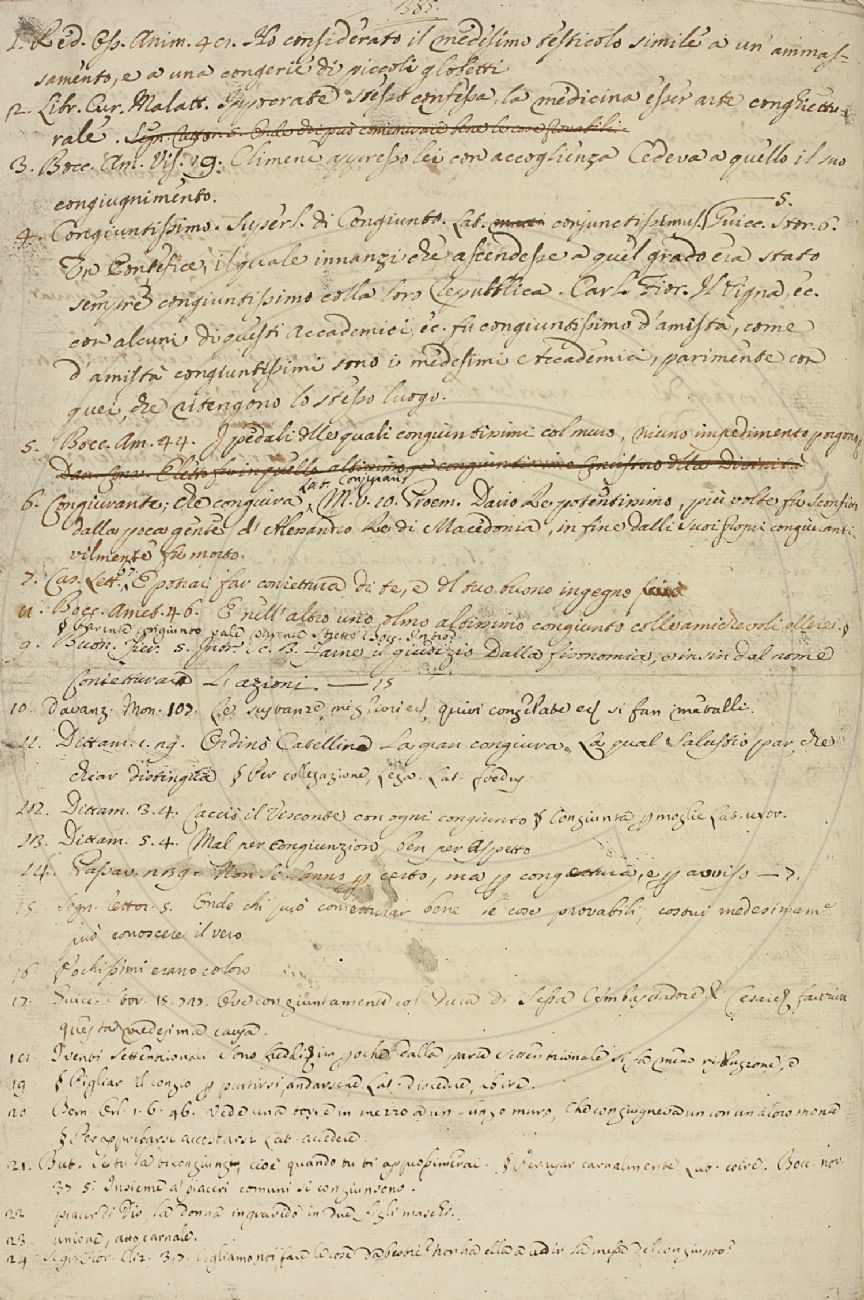 385.
1. Red. Oss. Anim. 41. Ho considerato il medesimo testicolo simile a un' ammas-
samento, e a una congerie di piccoli globetti
2. Libr. Cur. Malatt. Ippocrate stesso confessa, la medicina esser arte conghiettu-
rale. Segn. Rettor. 5. Onde chi può conietturare bene le cose provabili.
3. Bocc. Am. Vis. 19. Climene appresso lei con accoglienza Cedeva a quello il suo
congiugnimento.
4. Congiuntissimo. Superl. di Congiunto. Lat. conjunctissimus. Guicc. Stor. 6.
5.
Un Pontefice, il quale innanzi che ascendesse a quel grado era stato
sempre congiuntissimo colla loro Repubblica. Carl. Fior. Il Pigna, ec.
con alcuni di questi Accademici, ec. fu congiuntissimo d'amistà, come
d'amistà congiuntissimi sono i medesimi Accademici, parimente con
quei, che ritengono lo stesso luogo.
5. Bocc. Am. 44. I pedali delle quali congiuntissimi col muro, niuno impedimento porgono
Dan. Conv. Elleno in quello altissimo e congiuntissimo Concistoro della Divinità
6. Congiurante; che congiura, Lat. Conjurans M. V. 10. Proem. Dario Re potentissimo, più volte fu sconfitto
dalla poca gente d'Alessandro Re di Macedonia, in fine dalli suoi stessi congiuranti
vilmente fu morto.
7. Cas. Lett. E potrai far coniettura di te, e del tuo buono ingegno
8. Bocc. Amet. 46. E nell'altro uno olmo altissimo congiunto colle amichevoli ellere.
§ Parente congiunto vale parente stretto Bocc. Introd.
9. Buon. Fier. 5. Intr. 1. e 8. Farne il giudizio Dalla fisonomia, e insin dal nome
Conietturare l'azioni — 15
10. Davanz. Mon. 107. Le sustanze migliori ec, quivi congelate ec si fan metalli.
11. Dittam. 1. 29. Ordinò Catellina La gran congiura, La qual Salustio par, che
chiar distingua § Per collegazione, Lega. Lat. foedus
12. Dittam. 3. 4. Cacciò il Visconte con ogni congiunto § Congiunta p moglie Lat. uxor.
13. Dittam. 5. 4. Mal per congiunzion, ben per aspetto
14. Passav. Non si sanno p certo, ma p congettura, e p avviso — 7.
15. Segn. Rettor. 5. Onde chi può conietturar bene le cose provabili, costui medesimam.e
può conoscere il vero
16. Pochissimi erano coloro
17. Guicc. Stor. 15. 717. Ove congiuntamente col Duca di Sessa l'Imbasciadore Cesareo faceva
questa medesima causa.
18. I venti settentrionali sono freddi, in poche dalla parte settentrionale si fa meno
19. § Pigliar il congio p partirsi, andarsene Lat. discedere, abire.
20. Bern. Orl. 1. 6. 46. Vede una torre in mezzo a un lungo muro, Che congiugneva un con un altro monte
§ Per appressarsi accostarsi Lat. accedere.
21. But. Se tu la ricongiungi, cioè quando tu ti approssimerai. § Per usar carnalmente Lat. coire. Bocc. nov.
37. 5. Insieme a' piaceri comuni si congiunsono.
22. piacer di Dio, la donna ingravidò in due figli maschi.
23. unione, atto carnale.
24. Segr. Fior. Cliz. 3. 7. Vogliamo noi fare le cose da bestie? non ha ella a udir la messa del congiunto?